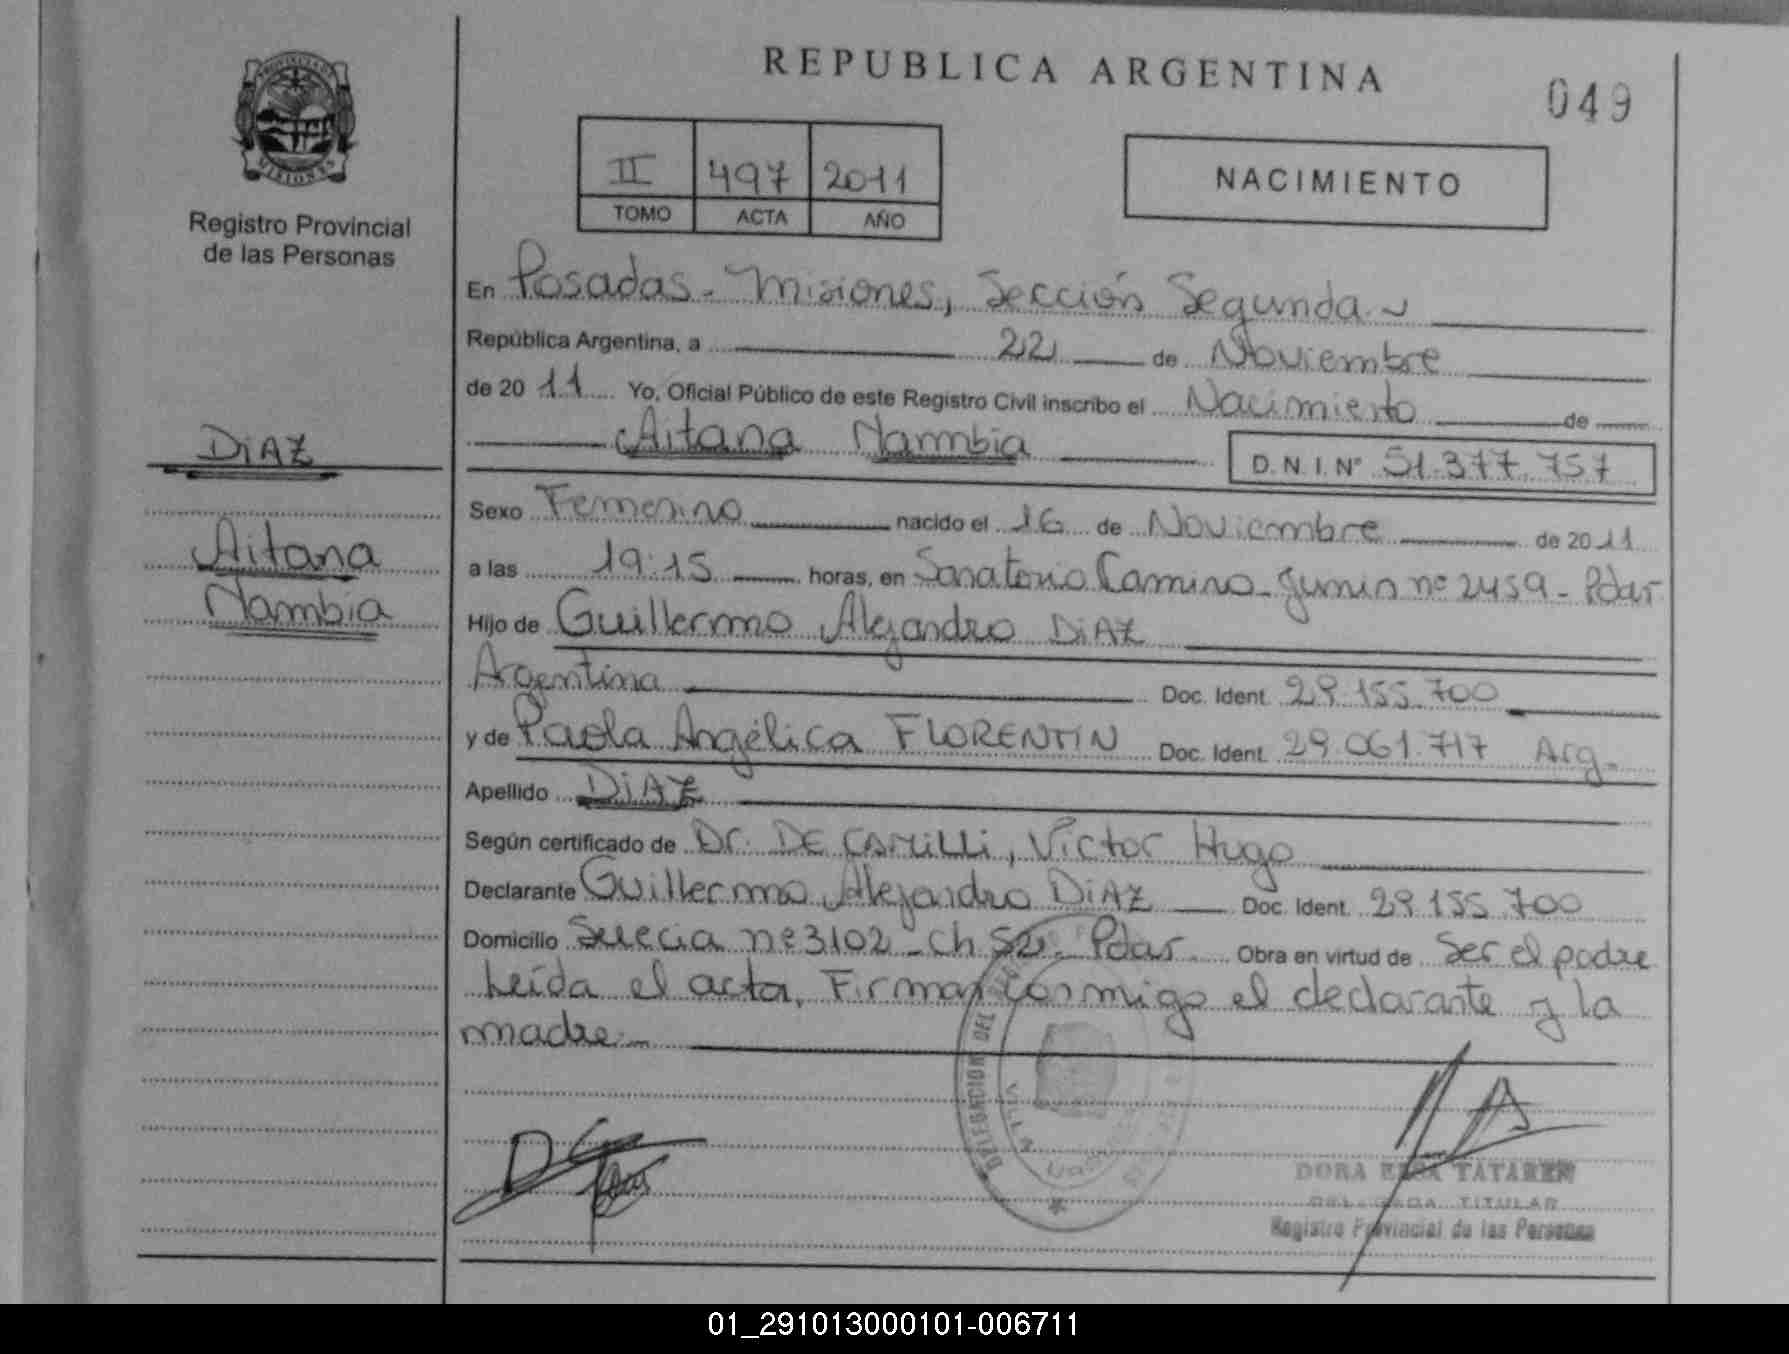 REPUBLICA ARGENTINA
049
PROVINCIA DE
MISIONES
Registro Provincial
de las Personas
II 497 2011
TOMO ACTA AÑO
NACIMIENTO
En Posadas - Misiones, Sección Segunda
República Argentina, a 22 de Noviembre
de 2011 Yo, Oficial Público de este Registro Civil inscribo el Nacimiento de
Aitana Nambia D.N.I. Nº 51.377.757
DIAZ
Aitana
Nambia
Sexo Femenino nacido el 16 de Noviembre de 2011
a las 19:15 horas, en Sanatorio Camino - Junin nº 2459 - Pdas
Hijo de Guillermo Alejandro DIAZ
Argentina Doc. Ident. 29.155.700
y de Paola Angélica FLORENTIN Doc. Ident. 29.061.717 Arg.
Apellido DIAZ
Según certificado de Dr. DE CAMILLI, Victor Hugo
Declarante Guillermo Alejandro DIAZ Doc. Ident. 29.155.700
Domicilio Suecia nº 3102 - Ch 52 - Pdas. Obra en virtud de Ser el padre
Leída el acta, Firman conmigo el declarante y la
madre.-
DELEGACION DEL
VILLA
DORA TATAREN
TITULAR
Registro Provincial de las Personas
01_291013000101-006711